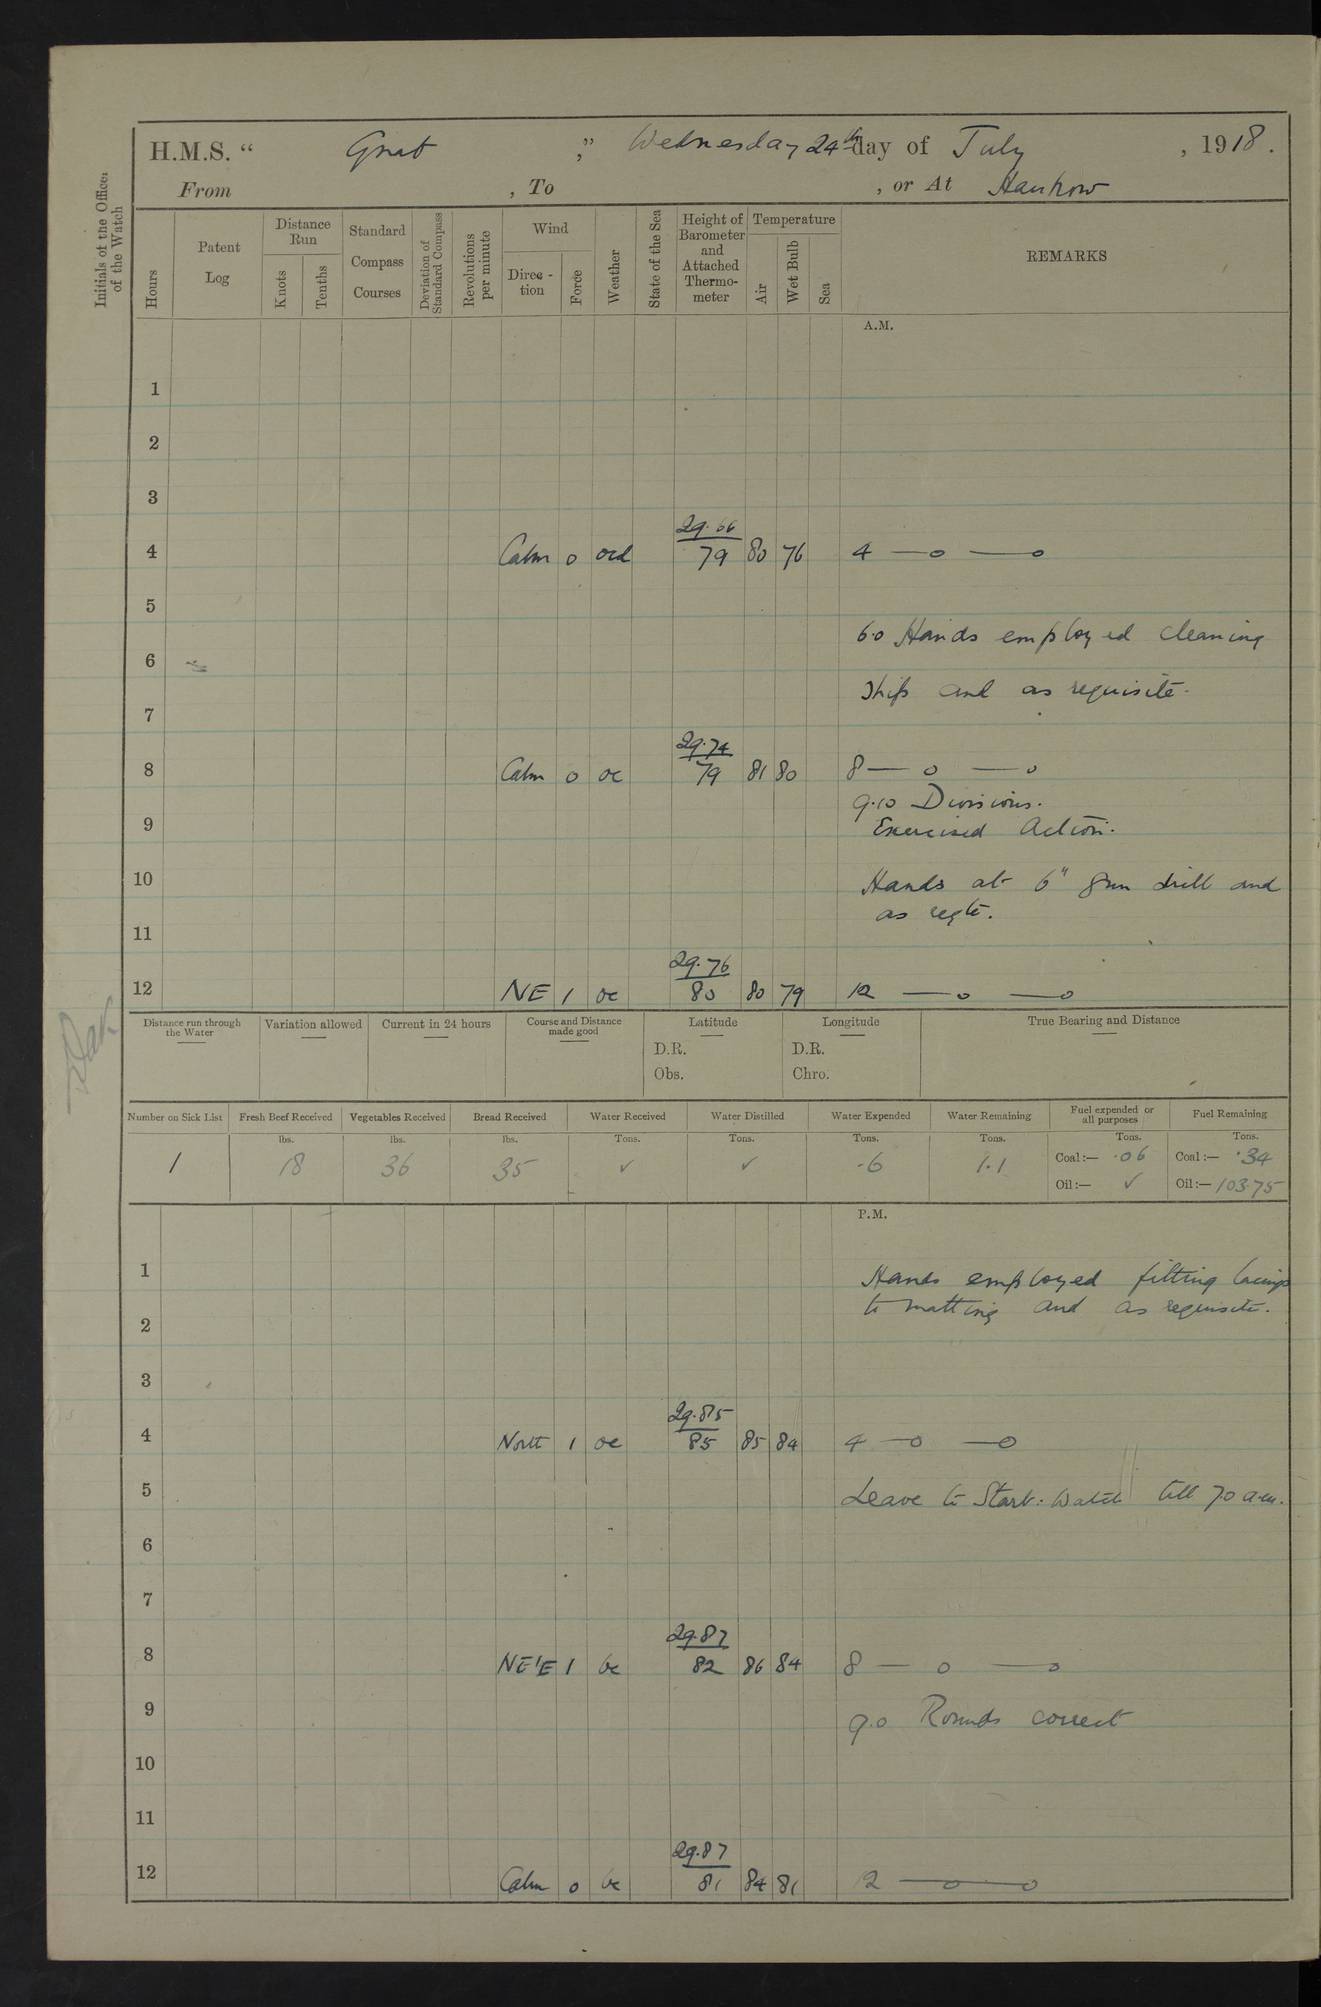 H.M.S. “ Gnat ,” Wednesday 24th day of July , 1918.
From , To , or At Hankow
Initials of the Officer of the Watch
Hours
Patent Log
Distance Run
Knots
Tenths
Standard Compass Courses
Deviation of Standard Compass
Revolutions per minute
Wind
Direc-tion
Force
Weather
State of the Sea
Height of Barometer and Attached Thermo-meter
Temperature
Air
Wet Bulb
Sea
REMARKS
A.M.
1
2
3
29.66
4 Calm 0 ocd 79 80 76 4 —o —o
5
6.0 Hands employed cleaning
6
ship and as requisite.
7
29.74
8 Calm 0 oc 79 81 80 8 — o — o
9.10 Divisions.
9
Exercised Action.
10 Hands at 6" gun drill and
as reqte.
11
29.76
12 NE 1 oc 80 80 79 12 —o —o
Distance run through the Water
Variation allowed
Current in 24 hours
Course and Distance made good
Latitude
D.R.
Obs.
Longitude
D.R.
Chro.
True Bearing and Distance
Number on Sick List
Fresh Beef Received
Vegetables Received
Bread Received
Water Received
Water Distilled
Water Expended
Water Remaining
Fuel expended or all purposes
Fuel Remaining
lbs. lbs. lbs. Tons. Tons. Tons. Tons. Tons. Tons.
1 18 36 35 ✓ ✓ .6 1.1 Coal:— .06 Coal:— .34
Oil:— ✓ Oil:— 103.75
P.M.
1 Hands employed fitting lacings
to matting and as requisite.
2
3
29.85
4 North 1 oc 85 85 84 4 —o —o
5 Leave to Starb: Watch till 7.0 a.m.
6
7
29.87
8 NE'E 1 bc 82 86 84 8 — o — o
9 9.0 Rounds correct
10
11
29.87
12 Calm 0 bc 81 84 81 12 —o —o